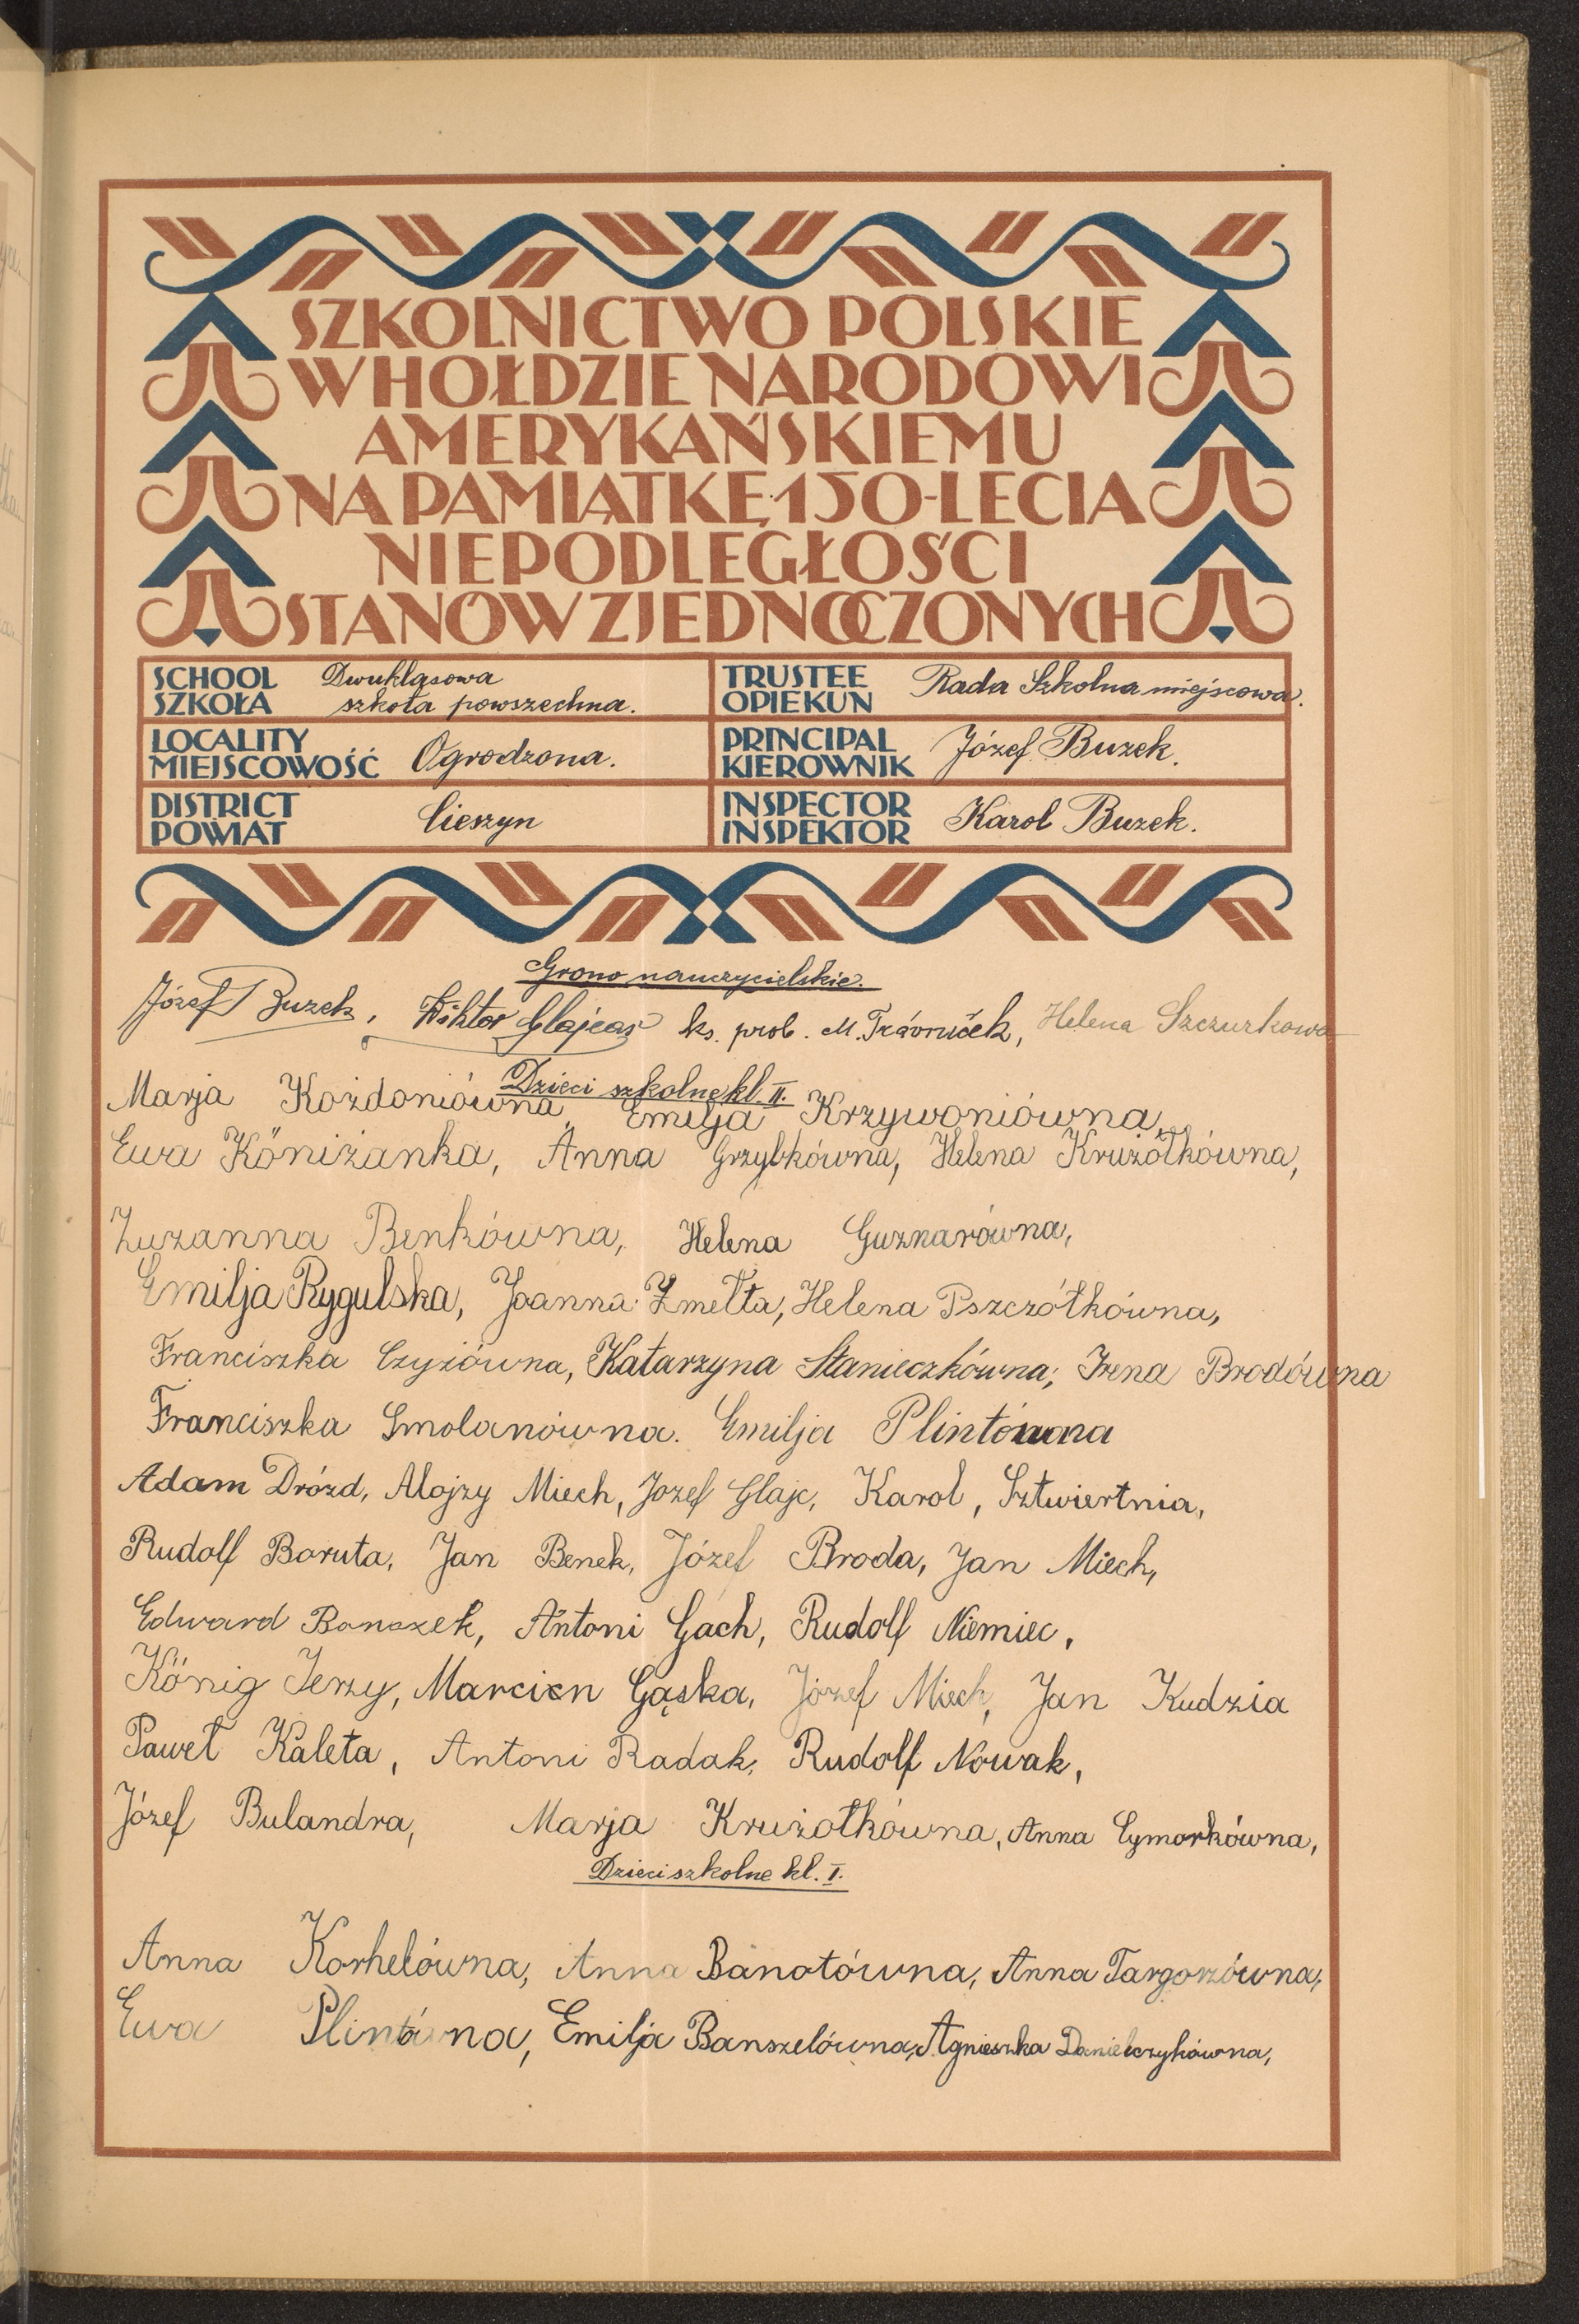 SZKOLNICTWO POLSKIE
W HOŁDZIE NARODOWI
AMERYKAŃSKIEMU
NA PAMIĄTKĘ 150-LECIA
NIEPODLEGŁOŚCI
STANÓW ZJEDNOCZONYCH
SCHOOL SZKOŁA Dwuklasowa szkoła powszechna.
TRUSTEE OPIEKUN Rada Szkolna miejscowa.
LOCALITY MIEJSCOWOŚĆ Ogrodzona.
PRINCIPAL KIEROWNIK Józef Buzek.
DISTRICT POWIAT Cieszyn
INSPECTOR INSPEKTOR Karol Buzek.
Grono nauczycielskie.
Józef Buzek, Wiktor Glajcar ks. prob. M. Trávníček, Helena Szczurkowa
Dzieci szkolne kl. II.
Marja Kożdoniówna, Emilja Krzywoniówna,
Ewa Köniżanka, Anna Grzybkówna, Helena Krużołkówna,
Zuzanna Benkówna, Helena Guznarówna,
Emilja Rygulska, Joanna Żmełta, Helena Pszczółkówna,
Franciszka Czyżówna, Katarzyna Stanieczkówna, Irena Brodówna
Franciszka Smolanówna. Emilja Plintówna
Adam Drózd, Alojzy Miech, Jozef Glajc, Karol, Sztwiertnia,
Rudolf Boruta, Jan Benek, Józef Broda, Jan Miech,
Edward Banszek, Antoni Gach, Rudolf Niemiec,
König Jerzy, Marcin Gąska, Józef Miech, Jan Kudzia
Paweł Kaleta, Antoni Radak, Rudolf Nowak,
Józef Bulandra, Marja Krużołkówna, Anna Cymorkówna,
Dzieci szkolne kl. I.
Anna Korhelówna, Anna Banotówna, Anna Targorzówna,
Ewa Plintówna, Emilja Banszelówna, Agnieszka Danielczykówna,